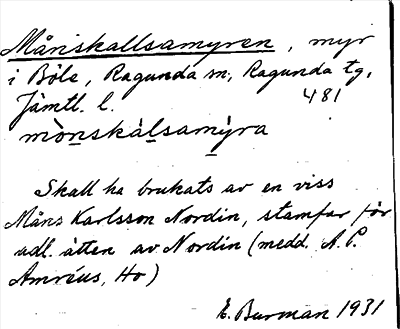 Månskallsamyren, myr
i Böle, Ragunda sn, Ragunda tg,
Jämtl. l. 481
mònskàlsamỳra
Skall ha brukats av en viss
Måns Karlsson Nordin, stamfar för
adl. ätten av Nordin (medd. A. P.
Amréus, Ho)
E. Burman 1931